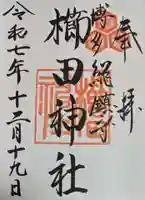 奉拝
博多總鎮守
櫛田神社
令和七年十二月十九日